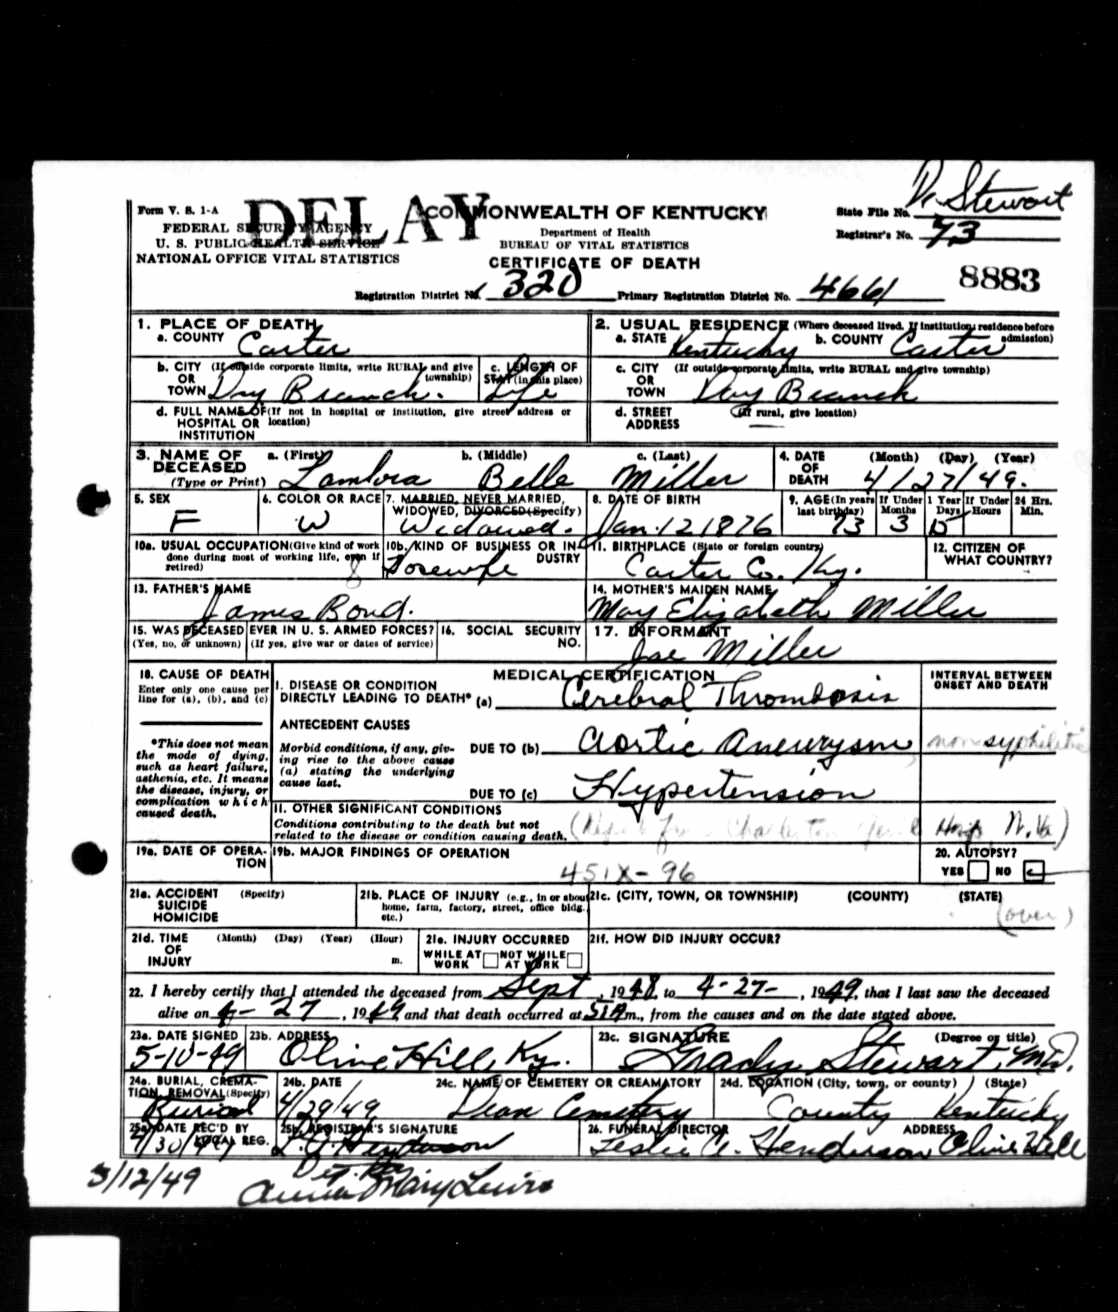 Dr. Stewart
Form V. S. 1-A DELAY COMMONWEALTH OF KENTUCKY State File No.
FEDERAL SECURITY AGENCY Department of Health Registrar's No. 73
U. S. PUBLIC HEALTH SERVICE BUREAU OF VITAL STATISTICS
NATIONAL OFFICE VITAL STATISTICS CERTIFICATE OF DEATH 8883
Registration District No. 320 Primary Registration District No. 4661
1. PLACE OF DEATH 2. USUAL RESIDENCE (Where deceased lived. If institution: residence before admission)
a. COUNTY Carter a. STATE Kentucky b. COUNTY Carter
b. CITY (If outside corporate limits, write RURAL and give township) OR TOWN Dry Branch. c. LENGTH OF STAY (in this place) Life c. CITY (If outside corporate limits, write RURAL and give township) OR TOWN Dry Branch
d. FULL NAME OF (If not in hospital or institution, give street address or location) HOSPITAL OR INSTITUTION d. STREET ADDRESS (If rural, give location)
3. NAME OF DECEASED (Type or Print) a. (First) b. (Middle) Belle c. (Last) Miller 4. DATE OF DEATH (Month) (Day) (Year) 4/27/49.
5. SEX F 6. COLOR OR RACE W 7. MARRIED, NEVER MARRIED, WIDOWED, DIVORCED (Specify) Widowed. 8. DATE OF BIRTH Jan. 12 1876 9. AGE (In years last birthday) 73 If Under 1 Year Months 3 Days 15 If Under 24 Hrs. Hours Min.
10a. USUAL OCCUPATION (Give kind of work done during most of working life, even if retired) 10b. KIND OF BUSINESS OR INDUSTRY 11. BIRTHPLACE (State or foreign country) Carter Co. Ky. 12. CITIZEN OF WHAT COUNTRY?
13. FATHER'S NAME James Bond. 14. MOTHER'S MAIDEN NAME May Elizabeth Miller
15. WAS DECEASED EVER IN U. S. ARMED FORCES? (Yes, no, or unknown) (If yes, give war or dates of service) 16. SOCIAL SECURITY NO. 17. INFORMANT Joe Miller
18. CAUSE OF DEATH MEDICAL CERTIFICATION INTERVAL BETWEEN ONSET AND DEATH
Enter only one cause per line for (a), (b), and (c) I. DISEASE OR CONDITION DIRECTLY LEADING TO DEATH* (a) Cerebral Thrombosis
ANTECEDENT CAUSES
*This does not mean the mode of dying, such as heart failure, asthenia, etc. It means the disease, injury, or complication which caused death. Morbid conditions, if any, giving rise to the above cause (a) stating the underlying cause last. DUE TO (b) Aortic Aneurysm non syphilitic
DUE TO (c) Hypertension
II. OTHER SIGNIFICANT CONDITIONS
Conditions contributing to the death but not related to the disease or condition causing death. Charleston Hosp W. Va)
19a. DATE OF OPERATION 19b. MAJOR FINDINGS OF OPERATION 451X-96 20. AUTOPSY? YES NO
21a. ACCIDENT SUICIDE HOMICIDE (Specify) 21b. PLACE OF INJURY (e.g., in or about home, farm, factory, street, office bldg., etc.) 21c. (CITY, TOWN, OR TOWNSHIP) (COUNTY) (STATE)
(over)
21d. TIME OF INJURY (Month) (Day) (Year) (Hour) m. 21e. INJURY OCCURRED WHILE AT WORK NOT WHILE AT WORK 21f. HOW DID INJURY OCCUR?
22. I hereby certify that I attended the deceased from Sept, 1948, to 4-27-, 1949, that I last saw the deceased
alive on 4-27, 1949, and that death occurred at m., from the causes and on the date stated above.
23a. DATE SIGNED 5-10-49 23b. ADDRESS Olive Hill, Ky. 23c. SIGNATURE (Degree or title) Grady Stewart, M.D.
24a. BURIAL, CREMATION, REMOVAL (Specify) Burial 24b. DATE 4/29/49 24c. NAME OF CEMETERY OR CREAMATORY Dean Cemetery 24d. LOCATION (City, town, or county) (State) County Kentucky
25a. DATE REC'D BY LOCAL REG. 4/30/49 25b. REGISTRAR'S SIGNATURE Henderson 26. FUNERAL DIRECTOR ADDRESS Leslie C. Henderson Olive Hill
5/12/49 Mary Lewis